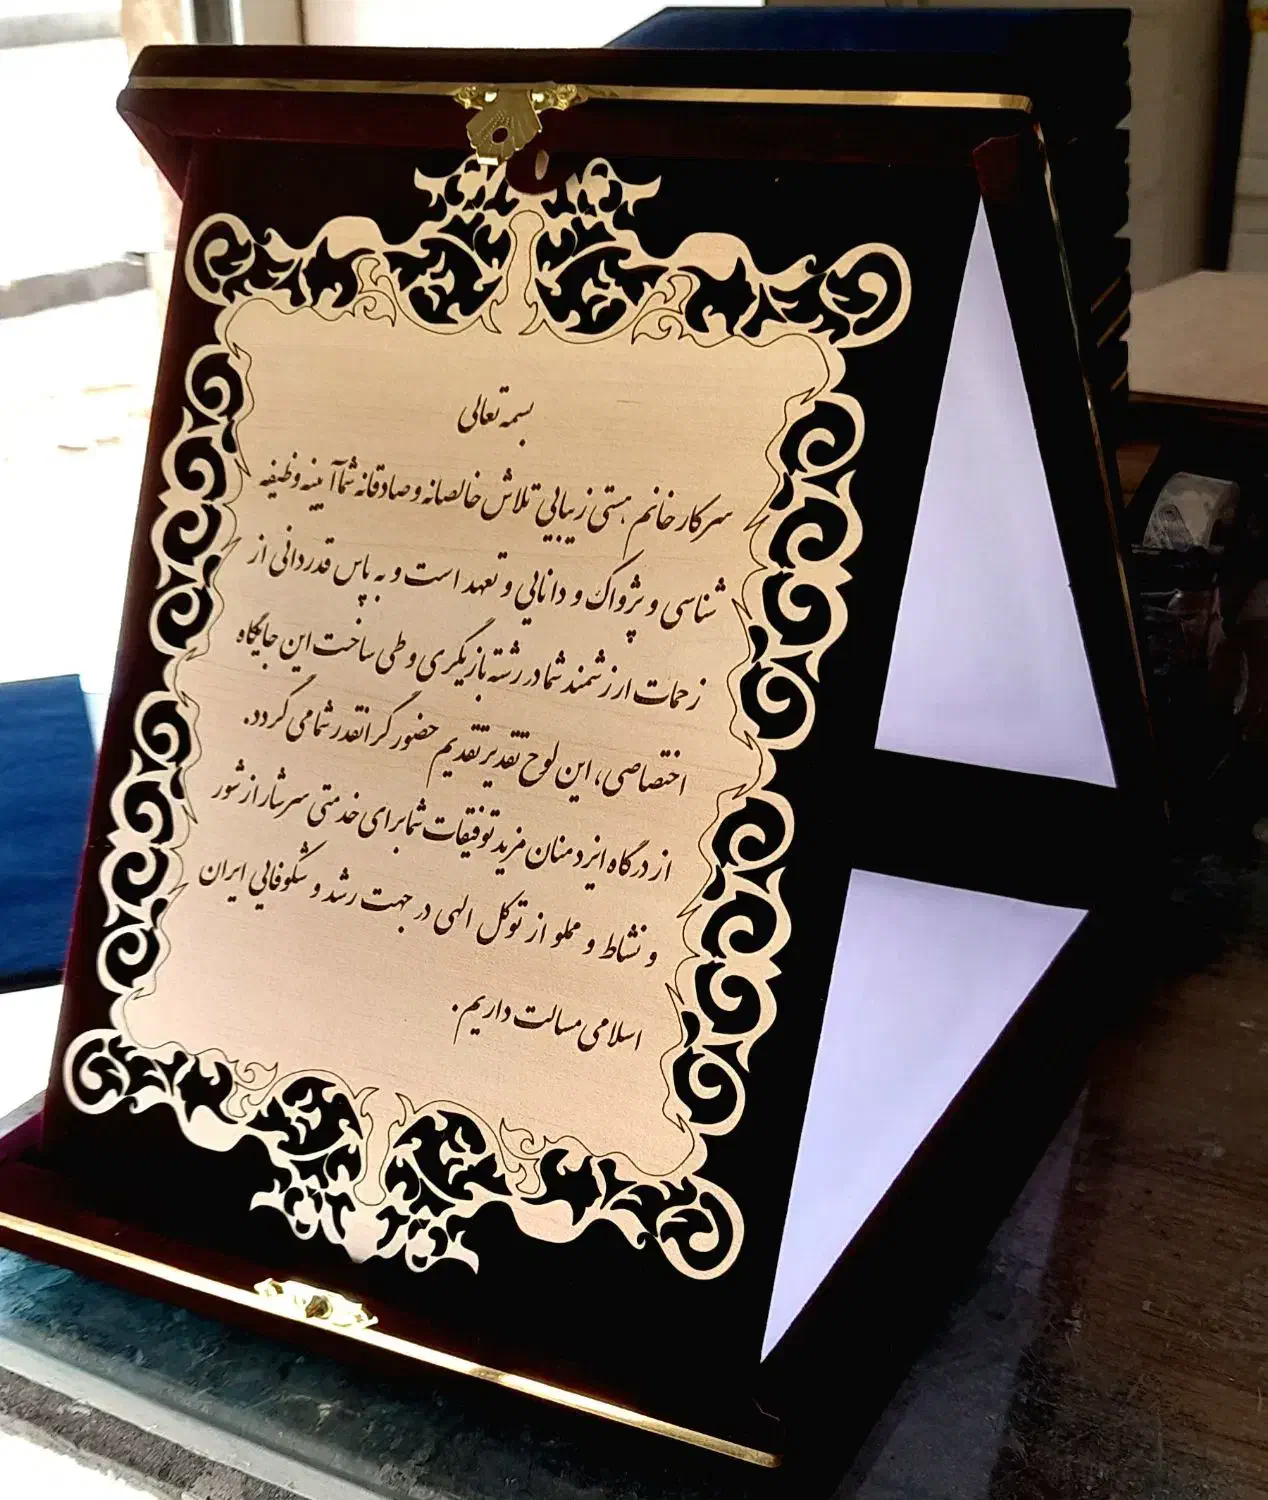 بسمه تعالی
سرکار خانم هستی زیبایی تلاش خالصانه و صادقانه شما آیینه وظیفه
شناسی و پژواک و دانایی و تعهد است و به پاس قدردانی از
زحمات ارزشمند شما در رشته بازیگری و طی ساخت این جایگاه
اختصاصی، این لوح تقدیر تقدیم حضور گرانقدر شما می گردد.
از درگاه ایزد منان مزید توفیقات شما برای خدمتی سرشار از شور
و نشاط و مملو از توکل الهی در جهت رشد و شکوفایی ایران
اسلامی مسالت داریم.